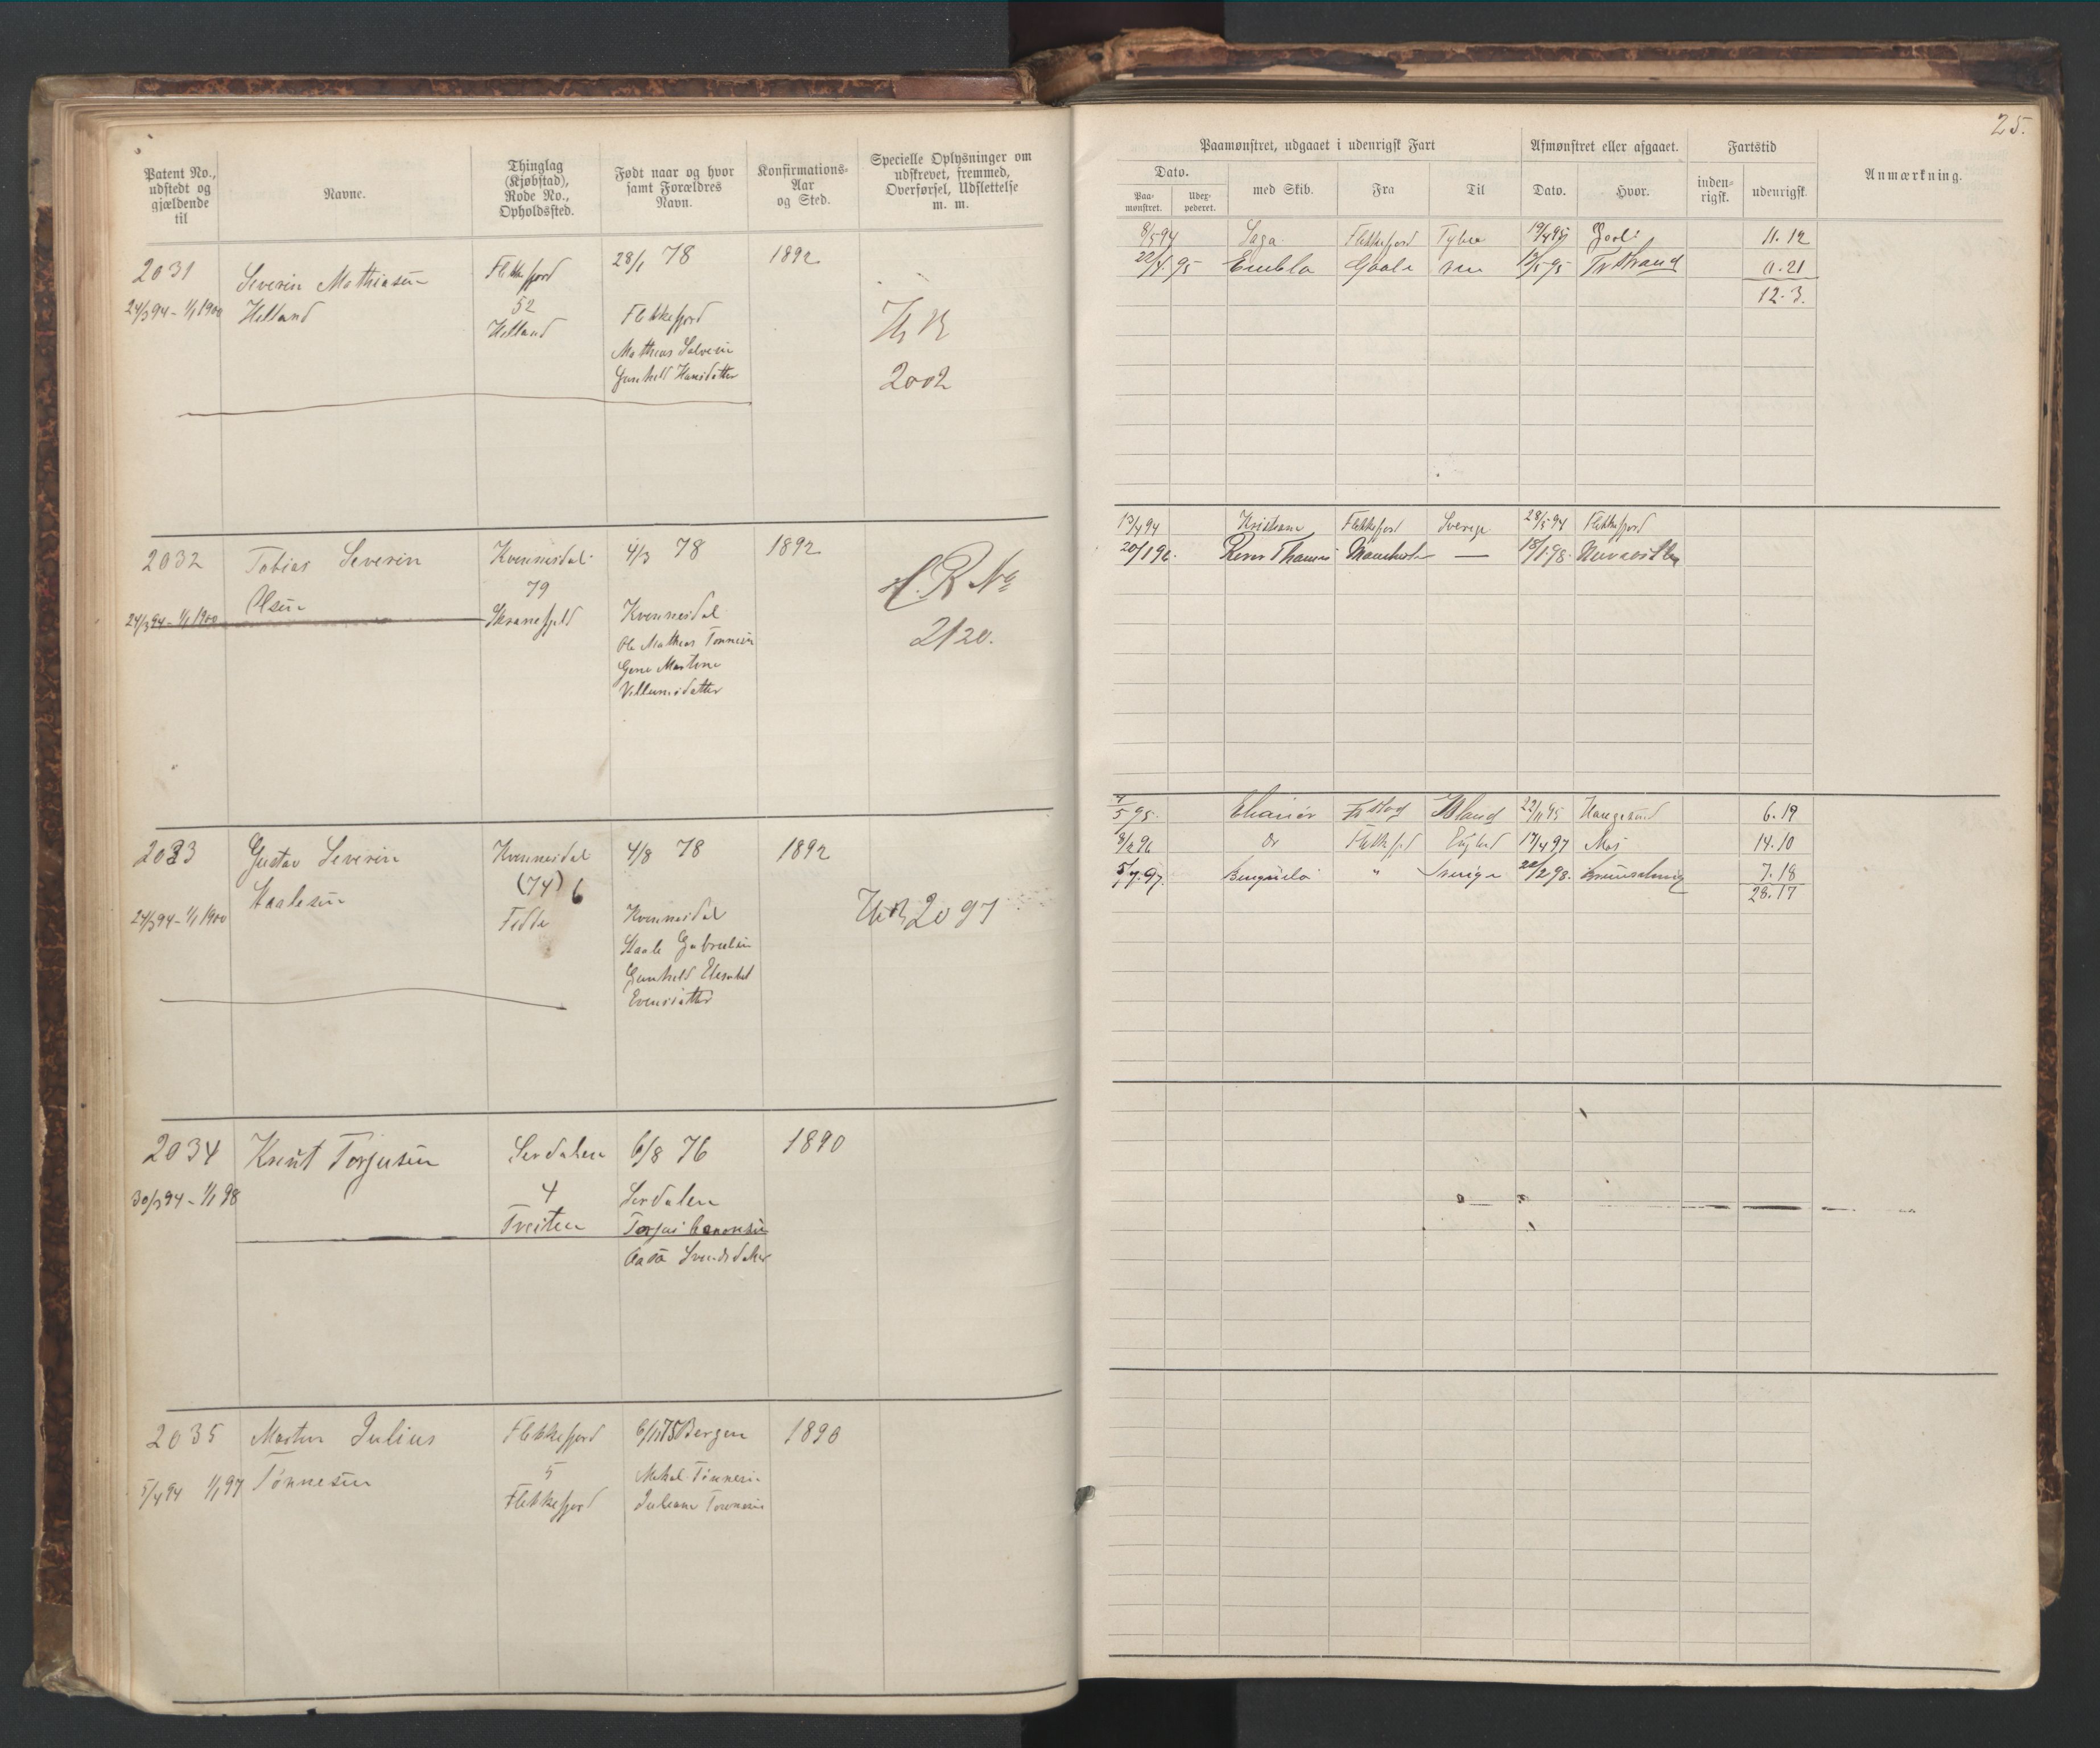 25.
Patent No., udstedt og gjældende til
Navne.
Thinglag (Kjøbstad), Rode No., Opholdssted.
Født naar og hvor samt Forældres Navn.
Konfirmations-Aar og Sted.
Specielle Oplysninger om udskrevet, fremmed, Overførsel, Udslettelse m. m.
Paamønstret, udgaaet i udenrigsk Fart
Dato.
Paa-mønstret.
Udex-pederet.
med Skib.
Fra
Til
Afmønstret eller afgaaet.
Dato.
Hvor.
Fartstid
inden-rigsk.
udenrigsk.
Anmærkning.
2031
24/3 94 - 1/1 1900
Severin Mathiasen
Helland
Flekkefjord
52
Helland
28/1 78
Flekkefjord
Mathias Salvesen
Gunhild Hansdatter
1892
2002
8/5 94 Saga Flekkefjord 19/4 95 11. 12
22/4 95 Embla 12/5 95 0. 21
12. 3.
2032
24/3 94 - 1/1 1900
Tobias Severin
Olsen
Kvinnesdal
79
4/3 78
Kvinnesdal
Ole Mathias Tønnesen
Villumsdatter
1892
2120.
13/4 94 Kristiane Flekkefjord Sverige 28/5 94 Flekkefjord
20/1 96. Manchester — 18/1 98.
2033
24/3 94 - 1/1 1900
Gustav Severin
Staalesen
Kvinnesdal
(74) 6
Fedde
4/8 78
Kvinnesdal
Staale Gabrielsen
Gunhild Elisabet
Evensdatter
1892
2097
7/5 95. 22/11 95 Haugesund 6. 19
17/4 97 14. 10
5/7 97. " Sverige 22/2 98. 7. 18
28. 17
2034
30/3 94 - 1/1 98
Knut Torjusen
Sirdalen
4
Tveiten
6/8 76
Sirdalen
Aasa Svendsdatter
1890
2035
5/4 94 1/1 97
Martin Julius
Tønnesen
Flekkefjord
5
Flekkefjord
6/11 75 Bergen
Mikal Tønnesen
Juliane Tønnesen
1890